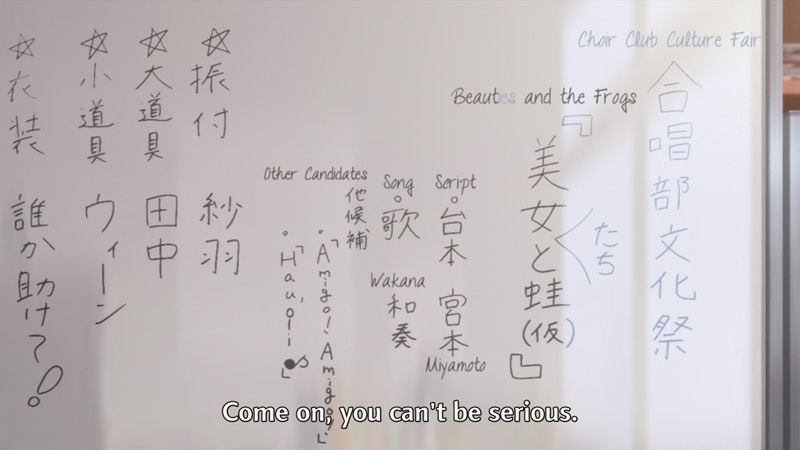 Choir Club Culture Fair
合唱部文化祭
Beauties and the Frogs
『美女と蛙(仮)』
たち
Script
台本
宮本
Miyamoto
Song
歌
Wakana
和奏
Other Candidates
他候補
「Amigo! Amigo!」
「Hau'oli's」
☆振付 紗羽
☆大道具 田中
☆小道具 ウィーン
☆衣装 誰か助けて!!
Come on, you can't be serious.